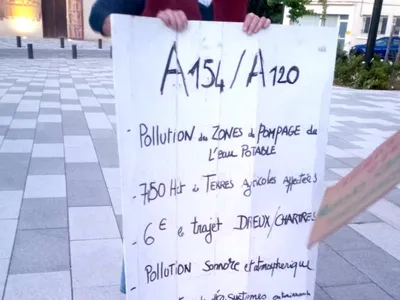 A154/A120
- Pollution des ZONES de POMPAGE de
L'eau POTABLE
- 750 Hct de TERRES Agricoles affectées
- 6€ le trajet DREUX/CHARTRES
- Pollution Sonore et atmospherique
systèmes